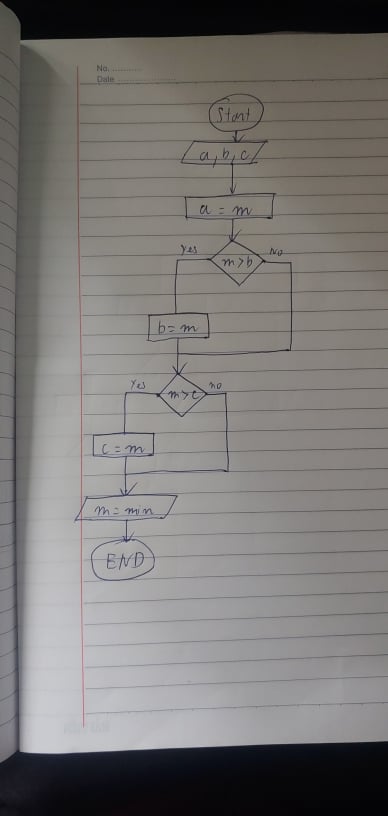 No. ............
Date ........................
Start
a, b, c
a = m
Yes
m>b
No
b = m
Yes
m>c
no
c = m
m = min
END